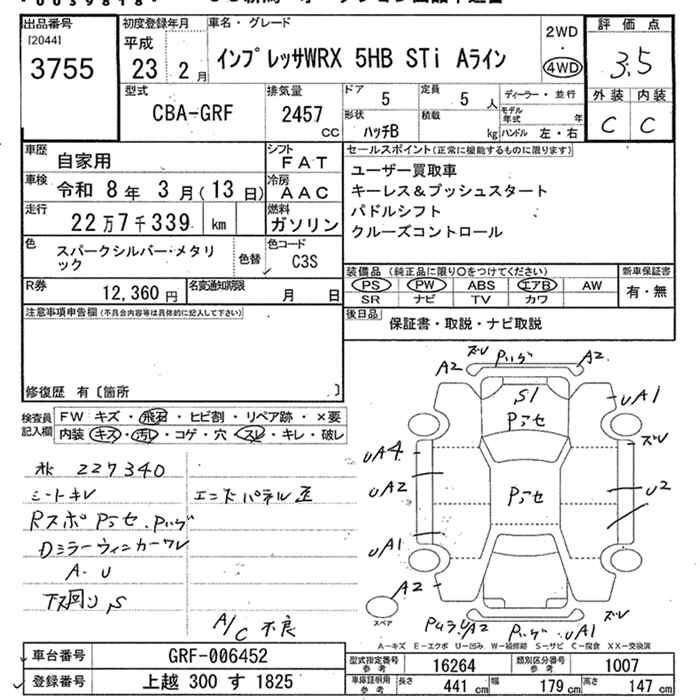 出品番号
[2044]
3755
初度登録年月
平成
23 2月
車名・グレード
インプレッサWRX 5HB STi Aライン
2WD
・
4WD
評価点
3.5
外装 内装
C C
型式
CBA-GRF
排気量
2457
CC
ドア
5
定員
5 人
形状
ハッチB
積載
kg
ディーラー・並行
モデル年式 年
ハンドル 左・右
車歴
自家用
シフト
FAT
車検
令和 8年 3月(13日)
冷房
AAC
走行
22万7千339 km
燃料
ガソリン
色
スパークシルバー・メタリック
色替
色コード
C3S
R券
12,360円
名変通知期限
月 日
セールスポイント(正常に機能するものに限ります)
ユーザー買取車
キーレス&プッシュスタート
パドルシフト
クルーズコントロール
装備品 (純正品に限り○をつけてください)
PS PW ABS エアB AW
SR ナビ TV カワ
新車保証書
有・無
後日品
保証書・取説・ナビ取説
注意事項申告欄(不具合内容等は具体的に記入して下さい)
修復歴 有〔箇所 〕
検査員記入欄
FW キズ・飛石・ヒビ割・リペア跡・×要
内装 キズ・汚レ・コゲ・穴・スレ・キレ・破レ
227340
シートキレ
エンドパネル歪
RスポPラセ.Pハゲ
Dミラーウィンカーワレ
A.U
下回りS
A/C 不良
ズレ
A2 Pハゲ A2
S1
Pラセ
UA1
ズレ
UA4
UA2
Pラセ
U2
UA1
A2
スペア
ズレ
Pハゲ
UA1
A−キズ E−エクボ U−凹み W−補修跡 S−サビ C−腐食 XX−交換済
車台番号
GRF-006452
登録番号
上越 300 す 1825
型式指定番号
参考
16264
類別区分番号
参考
1007
車庫証明用
参考
長さ 441 cm 幅 179 cm 高さ 147 cm